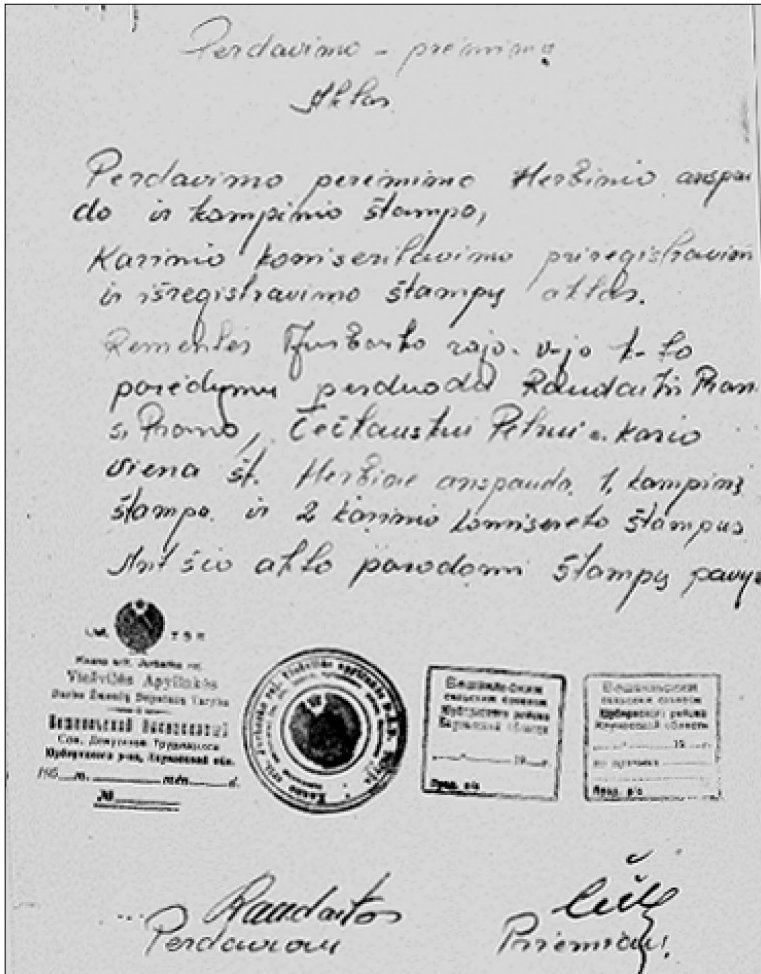 Perdavimo - priėmimo
Aktas
Perdavimo perėmimo Herbinio anspau
do ir kampinio štampo,
Karinio komiseritavimo priregistravim
ir išregistravimo štampų aktas.
Rementės Jurbarko rajo. v-jo k-to
parėdymu perduoda Raudaitis Pran
s. Prano, Čečkauskui Petrui s. Kazio
viena št. Herbinę anspauda. 1. kampinį
štampa. ir 2 karinio komisereto štampus
Ant šio akto parodomi štampų pavyz
T S R
Kauno srit. Jurbarko raj.
Viešvilės Apylinkės
Darbo Žmonių Deputatų Taryba
Сов. Депутатов Трудящихся
Юрбаркского р-на, Каунасской обл.
195 m. mėn. d.
№
Вешвильским
сельским советом
Юрбаркского района
Каунасской области
19 г.
Пред. р/с
Вешвильским
сельским советом
Юрбаркского района
Каунасской области
19 г.
Пред. р/с
Raudaitos
Perdaviau
Priėmiau!